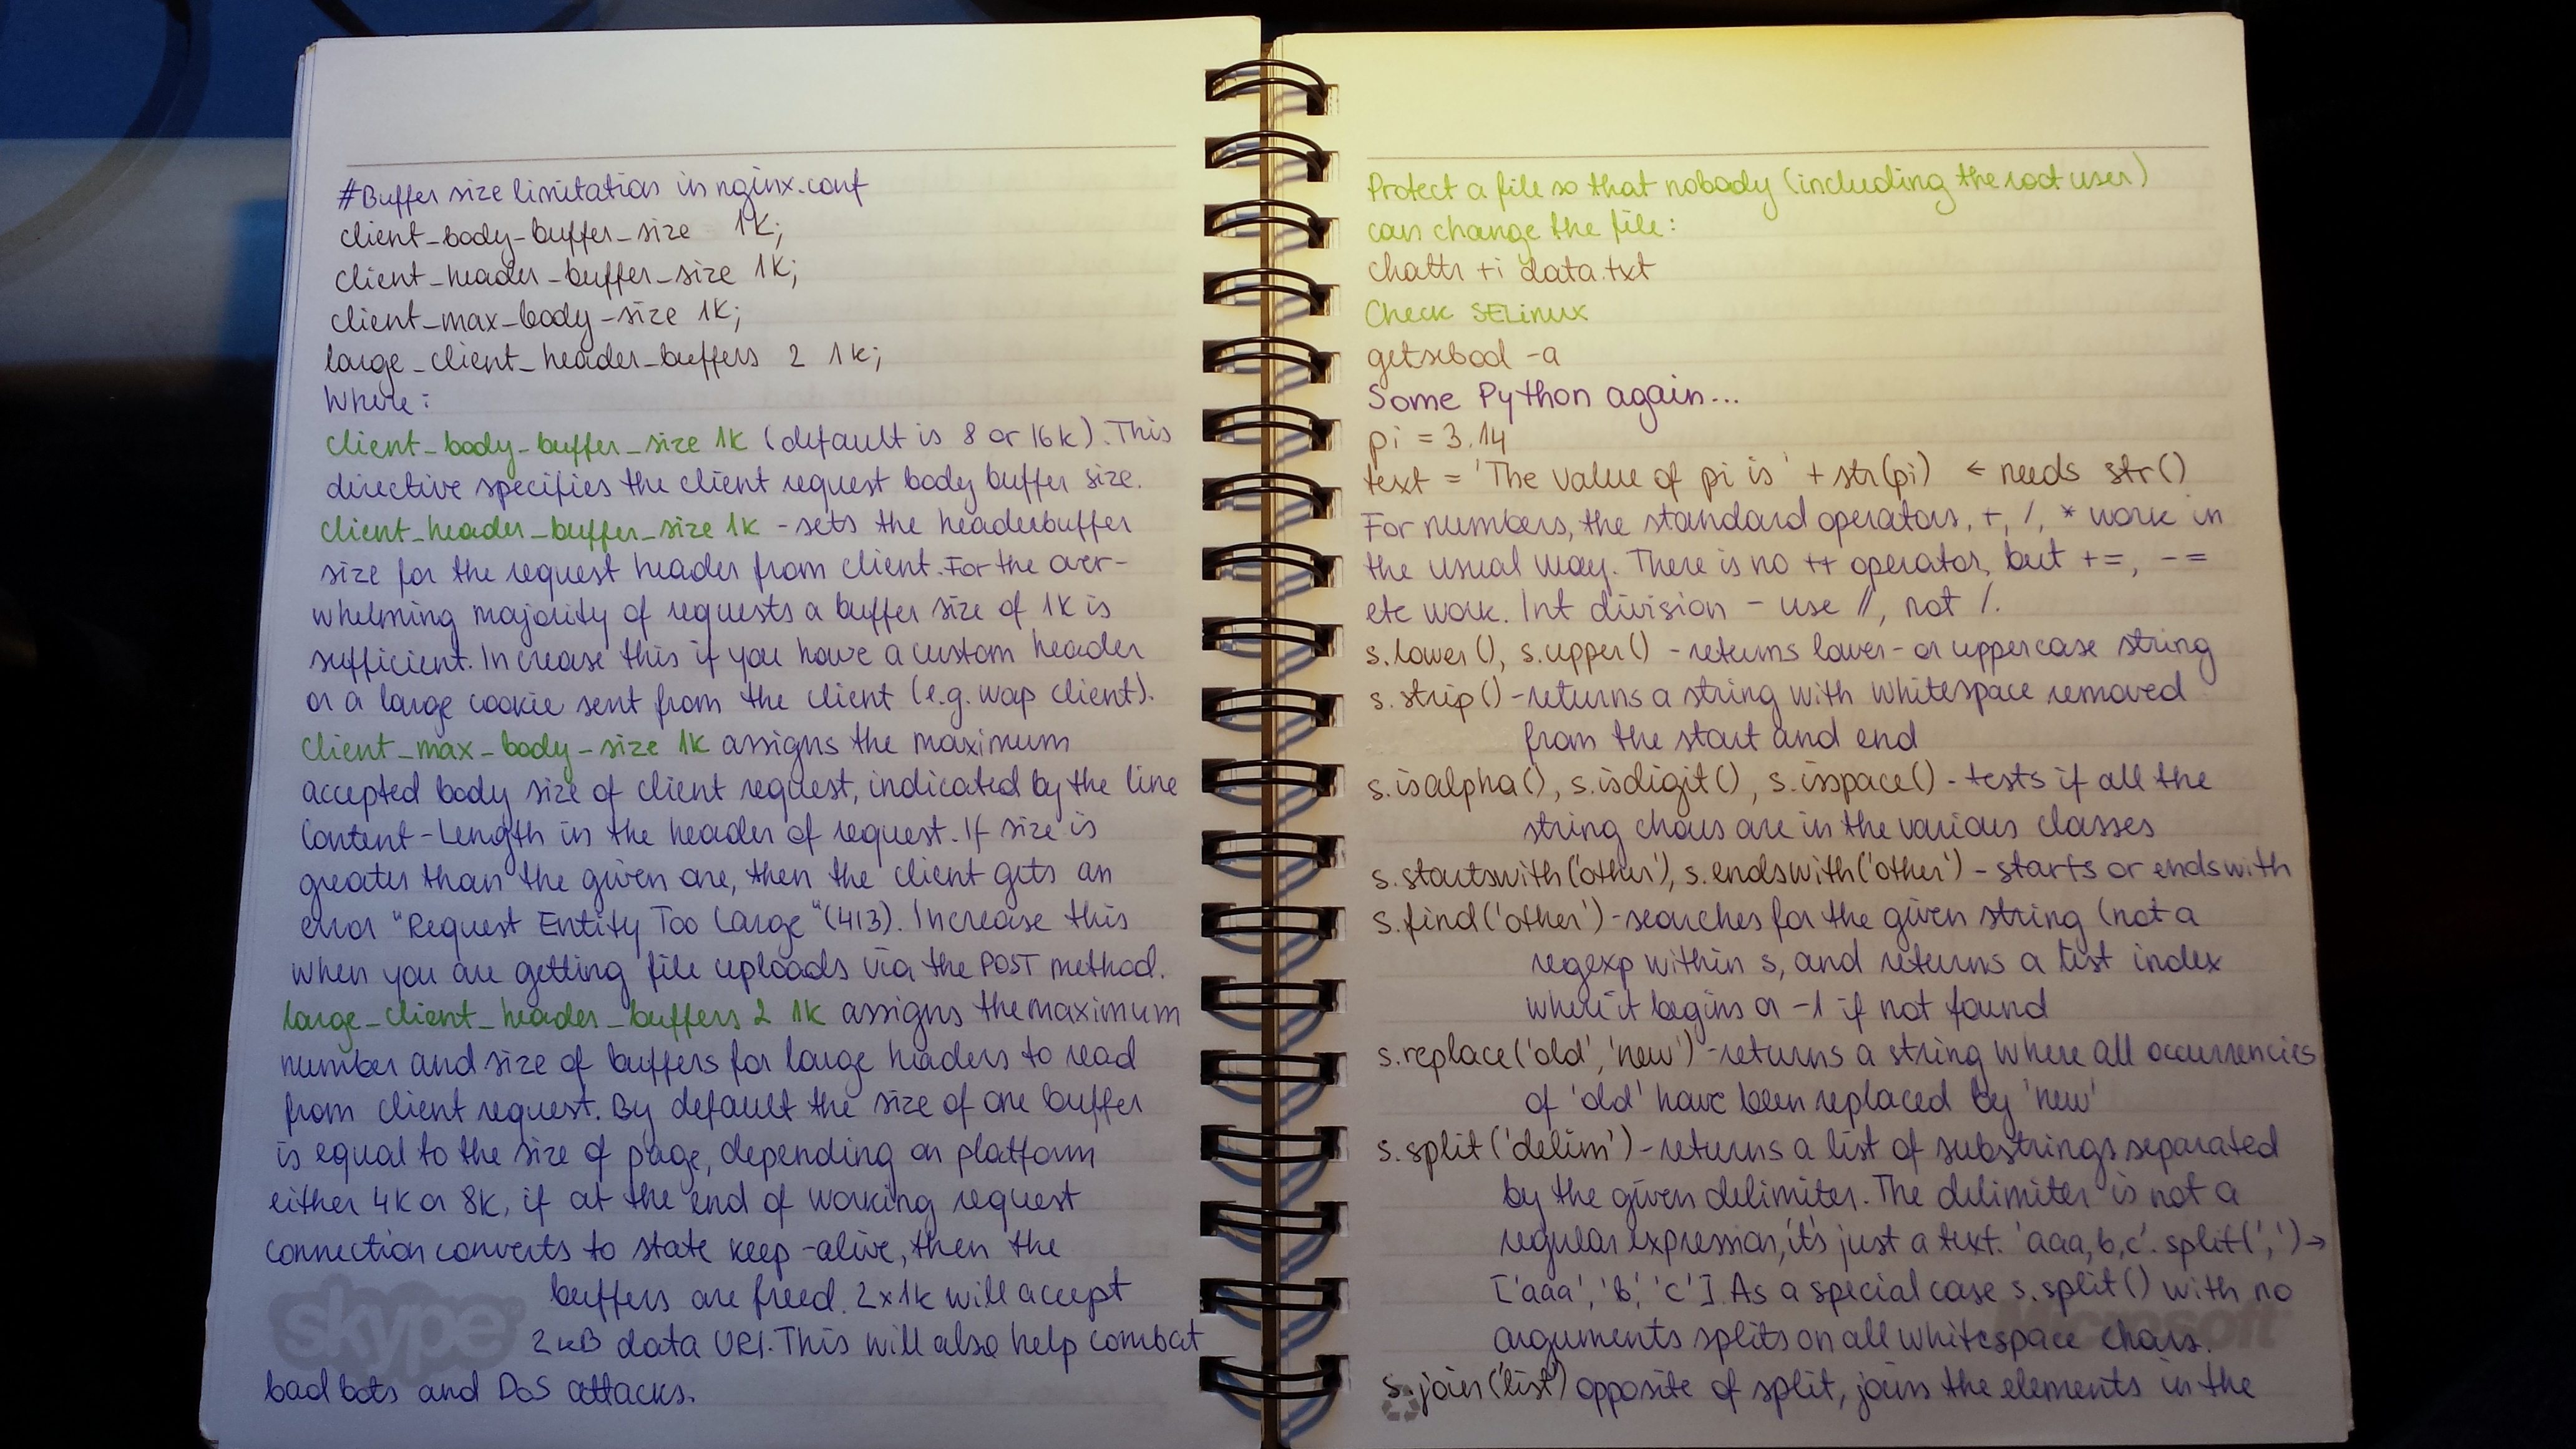 #Buffer size limitation in nginx.conf
client_body_buffer_size 1K;
client_header_buffer_size 1K;
client_max_body_size 1K;
large_client_header_buffers 2 1k;
Where:
client_body_buffer_size 1K (default is 8 or 16k). This
directive specifies the client request body buffer size.
client_header_buffer_size 1K - sets the headerbuffer
size for the request header from client. For the over-
whelming majority of requests a buffer size of 1K is
sufficient. Increase this if you have a custom header
or a large cookie sent from the client (e.g. wap client).
client_max_body_size 1K assigns the maximum
accepted body size of client request, indicated by the line
Content-Length in the header of request. If size is
greater than the given one, then the client gets an
error "Request Entity Too Large" (413). Increase this
when you are getting file uploads via the POST method.
large_client_header_buffers 2 1K assigns the maximum
number and size of buffers for large headers to read
from client request. By default the size of one buffer
is equal to the size of page, depending on platform
either 4K or 8K, if at the end of working request
connection converts to state keep-alive, then the
buffers are freed. 2x1k will accept
2kB data URI. This will also help combat
bad bots and DoS attacks.
skype
Protect a file so that nobody (including the root user)
can change the file:
chattr +i data.txt
Check SELinux
getsebool -a
Some Python again...
pi = 3.14
text = 'The value of pi is ' + str(pi) ← needs str()
For numbers, the standard operators, +, /, * work in
the usual way. There is no ++ operator, but +=, -=
etc work. Int division - use //, not /.
s.lower(), s.upper() - returns lower- or uppercase string
s.strip() - returns a string with whitespace removed
from the start and end
s.isalpha(), s.isdigit(), s.isspace() - tests if all the
string chars are in the various classes
s.startswith('other'), s.endswith('other') - starts or ends with
s.find('other') - searches for the given string (not a
regexp within s, and returns a first index
where it begins or -1 if not found
s.replace('old', 'new') - returns a string where all occurrencies
of 'old' have been replaced by 'new'
s.split('delim') - returns a list of substrings separated
by the given delimiter. The delimiter is not a
regular expression, it's just a text. 'aaa,b,c'.split(',') →
['aaa', 'b', 'c']. As a special case s.split() with no
arguments splits on all whitespace chars.
Microsoft
s.join('list') opposite of split, joins the elements in the